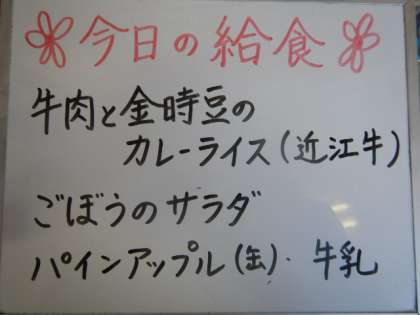 今日の給食
牛肉と金時豆の
カレーライス(近江牛)
ごぼうのサラダ
パインアップル(缶)・牛乳